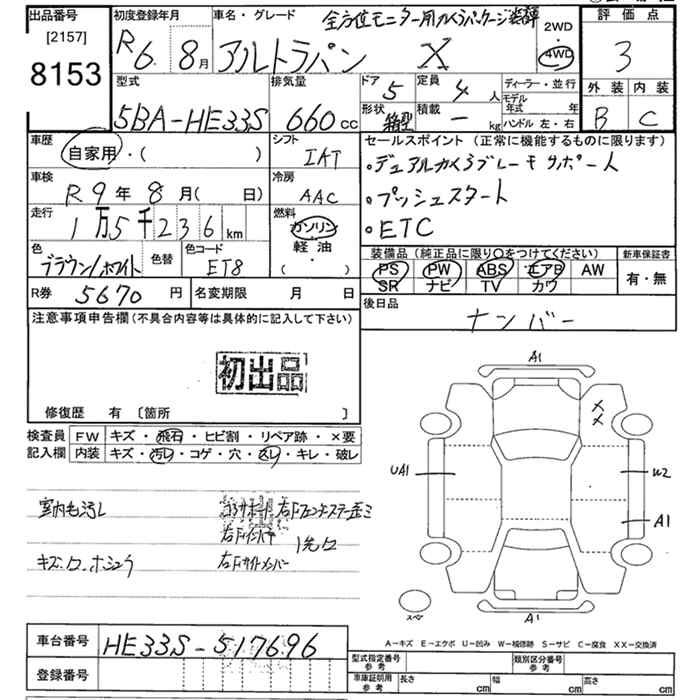 出品番号
[2157]
8153
初度登録年月
R6. 8月
車名・グレード
全方位モニター用カメラパッケージ装着
アルトラパン X
2WD
4WD
評価点
3
外装 内装
B C
型式
5BA-HE33S
排気量
660cc
ドア 5
定員 4人
形状 箱型
積載 - kg
ディーラー・並行
モデル年式 年
ハンドル 左・右
車歴
自家用・( )
シフト
IAT
車検
R9年8月( 日)
冷房
AAC
走行
1万5千236km
燃料
ガソリン
軽油
( ・ )
色
ブラウン/ホワイト
色替
色コード
ET8
R券 5670円
名変期限 月 日
セールスポイント(正常に機能するものに限ります)
・デュアルカメラブレーキサポート
・プッシュスタート
・ETC
装備品(純正品に限り○をつけてください)
PS PW ABS エアB AW
SR ナビ TV カワ
新車保証書
有・無
後日品
ナンバー
注意事項申告欄(不具合内容等は具体的に記入して下さい)
初出品
修復歴 有 〔箇所 〕
検査員記入欄
FW キズ・飛石・ヒビ割・リペア跡・×要
内装 キズ・汚レ・コゲ・穴・スレ・キレ・破レ
室内毛汚レ
キズ.ワ.ホシュウ
コアサポート 右Fフェンダーステー歪ミ
右Fインパネ
右Fサイドメンバー
A1
XX
UA1
W2
A1
A1
スペア
A-キズ E-エクボ U-凹み W-補修跡 S-サビ C-腐食 XX-交換済
車台番号 HE33S-517696
登録番号
型式指定番号 参考
類別区分番号 参考
車庫証明用 参考
長さ cm
幅 cm
高さ cm